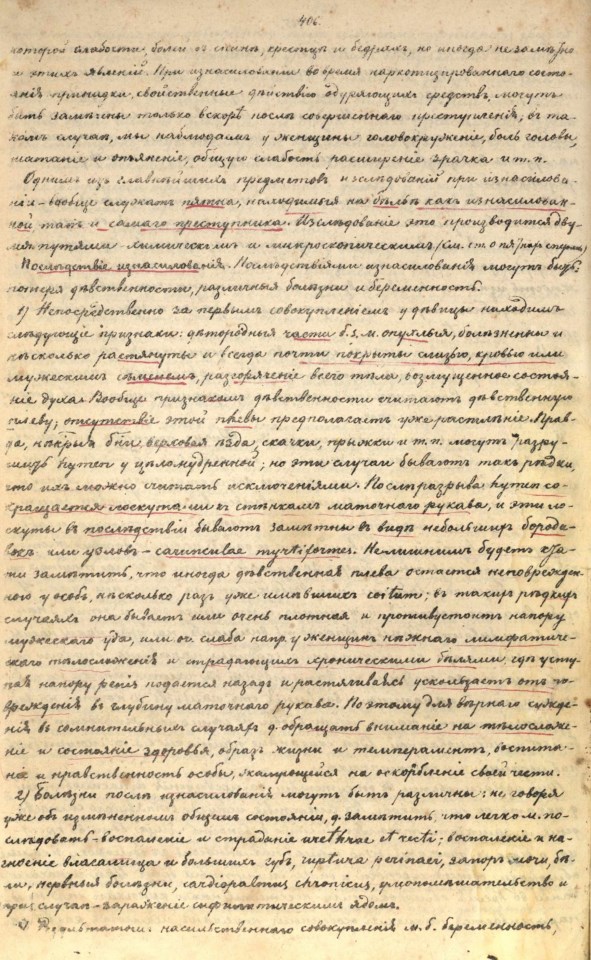 406.
которой слабости, болей въ спинѣ, крестцѣ и бедрахъ, но иногда не замѣтно
и этихъ явленій. При изнасилованіи во время наркотизированнаго состо-
янія припадки, свойственные дѣйствію одуряющихъ средствъ, могутъ
быть замѣчены только вскорѣ послѣ совершеннаго преступленія; въ та-
комъ случаѣ, мы наблюдаемъ у женщины головокруженіе, боль головы,
шатаніе и опьяненіе, общую слабость, расширеніе зрачка и т. п.
Однимъ изъ главнѣйшихъ предметовъ изслѣдованій при изнасилова-
ніи вообще служатъ пятна, находимыя на бѣльѣ какъ изнасилован-
ной такъ и самаго преступника. Изслѣдованіе это производится дву-
мя путями – химическимъ и микроскопическимъ (см. ст. о
Послѣдствіе изнасилованія. Послѣдствіями изнасилованія могутъ быть:
потеря дѣвственности, различныя болѣзни и беременность.
1) Непосредственно за первымъ совокупленіемъ у дѣвицы находимъ
слѣдующіе признаки: дѣтородныя части б. з. м. опухлыя, болѣзненны и
нѣсколько растянуты и всегда почти покрыты слизью, кровью или
мужескимъ сѣменемъ, разгоряченіе всего тѣла, возмущенное состоя-
ніе духа. Вообще признакомъ дѣвственности считаютъ дѣвственную
плеву; отсутствіе этой плевы предполагаетъ уже растлѣніе. Прав-
да, верховая ѣзда, скачки, прыжки и т. п. могутъ разру-
шить hymen у цѣломудренной; но эти случаи бываютъ такъ рѣдки,
что ихъ можно считать исключеніями. Послѣ разрыва hymen со-
кращается лоскутами къ стѣнкамъ маточнаго рукава, и эти ло-
скуты въ послѣдствіи бываютъ замѣтны въ видѣ небольшихъ борода-
вокъ или узловъ – carunculae myrtiformes. Нелишнимъ будетъ кста-
ти замѣтить, что иногда дѣвственная плева остается неповрежден-
ною у особъ, нѣсколько разъ уже имѣвшихъ coitum; въ такихъ рѣдкихъ
случаяхъ она бываетъ или очень плотная и противустоитъ напору
мужескаго уда, или оч. слаба напр. у женщинъ нѣжнаго лимфатиче-
скаго тѣлосложенія и страдающихъ хроническими бѣлями, гдѣ усту-
пая напору penis подается назадъ и растягиваясь ускользаетъ отъ по-
врежденія въ глубину маточнаго рукава. По этому для вѣрнаго сужде-
нія въ сомнительныхъ случаяхъ д. обращать вниманіе на тѣлосложе-
ніе и состояніе здоровья, образъ жизни и темпераментъ, воспита-
ніе и нравственность особы, жалующейся на оскорбленіе своей чести.
2) Болѣзни послѣ изнасилованія могутъ быть различны: не говоря
уже объ измѣненномъ общемъ состояніи, д. замѣтить, что легко м. по-
слѣдовать – воспаленіе и страданіе urethrae et recti; воспаленіе и на-
гноеніе влагалища и большихъ губъ, ruptura perinaei, запоръ мочи, бѣ-
ли, нервныя болѣзни, cardiopalmus chronicus, умопомѣшательство и
случаѣ – зараженіе сифилитическимъ ядомъ.
3) Результатомъ насильственнаго совокупленія м. б. беременность,